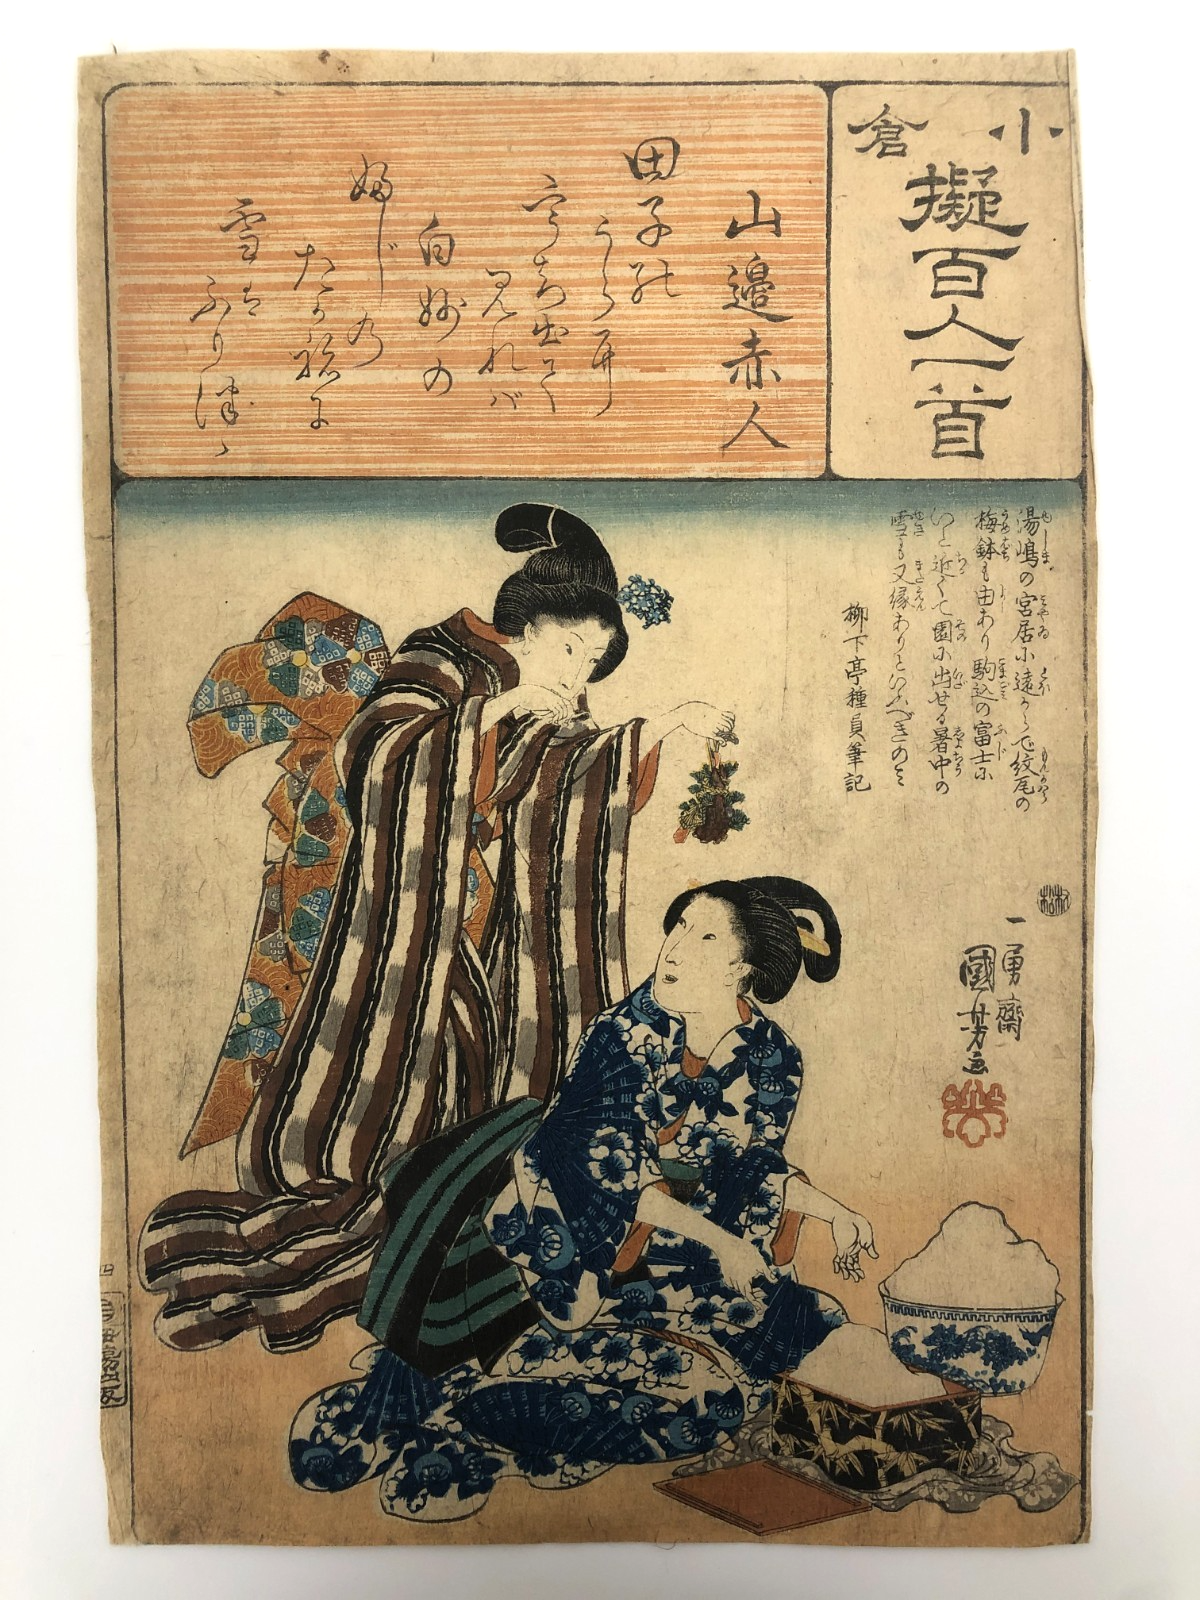 小倉
擬百人一首
山邊赤人
田子の
うら耳
うち出て
見れば
白妙の
婦じの
たか祢に
雪はふり津ゝ
湯嶋の宮居に遠からで紋尽の
梅鉢も由あり駒込の富士に
いと近くて園に出せる暑中の
雪も又縁ありといふべきのミ
柳下亭種員筆記
一勇齋
國芳画